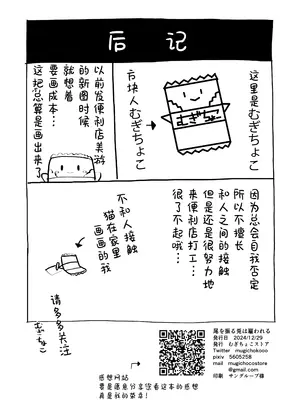 后记
这里是むぎちょこ
方块人むぎちょこ
むぎちょこ
以前发便利店美游
的新图时候
就想着
要画成本…
这把总算是画出来了
因为总会自我否定
所以不擅长
和人之间的接触
但是还是很努力地
来便利店打工…
很了不起哦…
不和人接触
猫在家里
画画的我
请多多关注
むぎちょこ
感想网站
要是愿意分享您看这本的感想
真是我的荣幸!
尾を振る兎は雇われる
発行日 2024/12/29
発行 むぎちょこストア
Twitter mugichokooo
pixiv 5605258
mail mugichocostore
@gmail.com
印刷 サングループ様